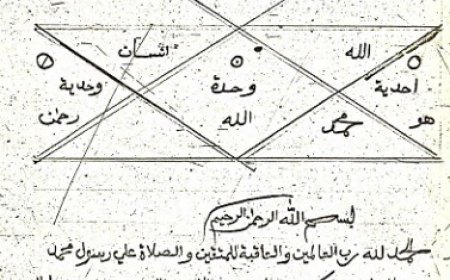 الله انسان
احدية وحدة وحدية
هو محمد الله رحمن
بسم الله الرحمن الرحيم
الحمد لله رب العالمين والعاقبة للمتقين والصلاة علي رسول محمد